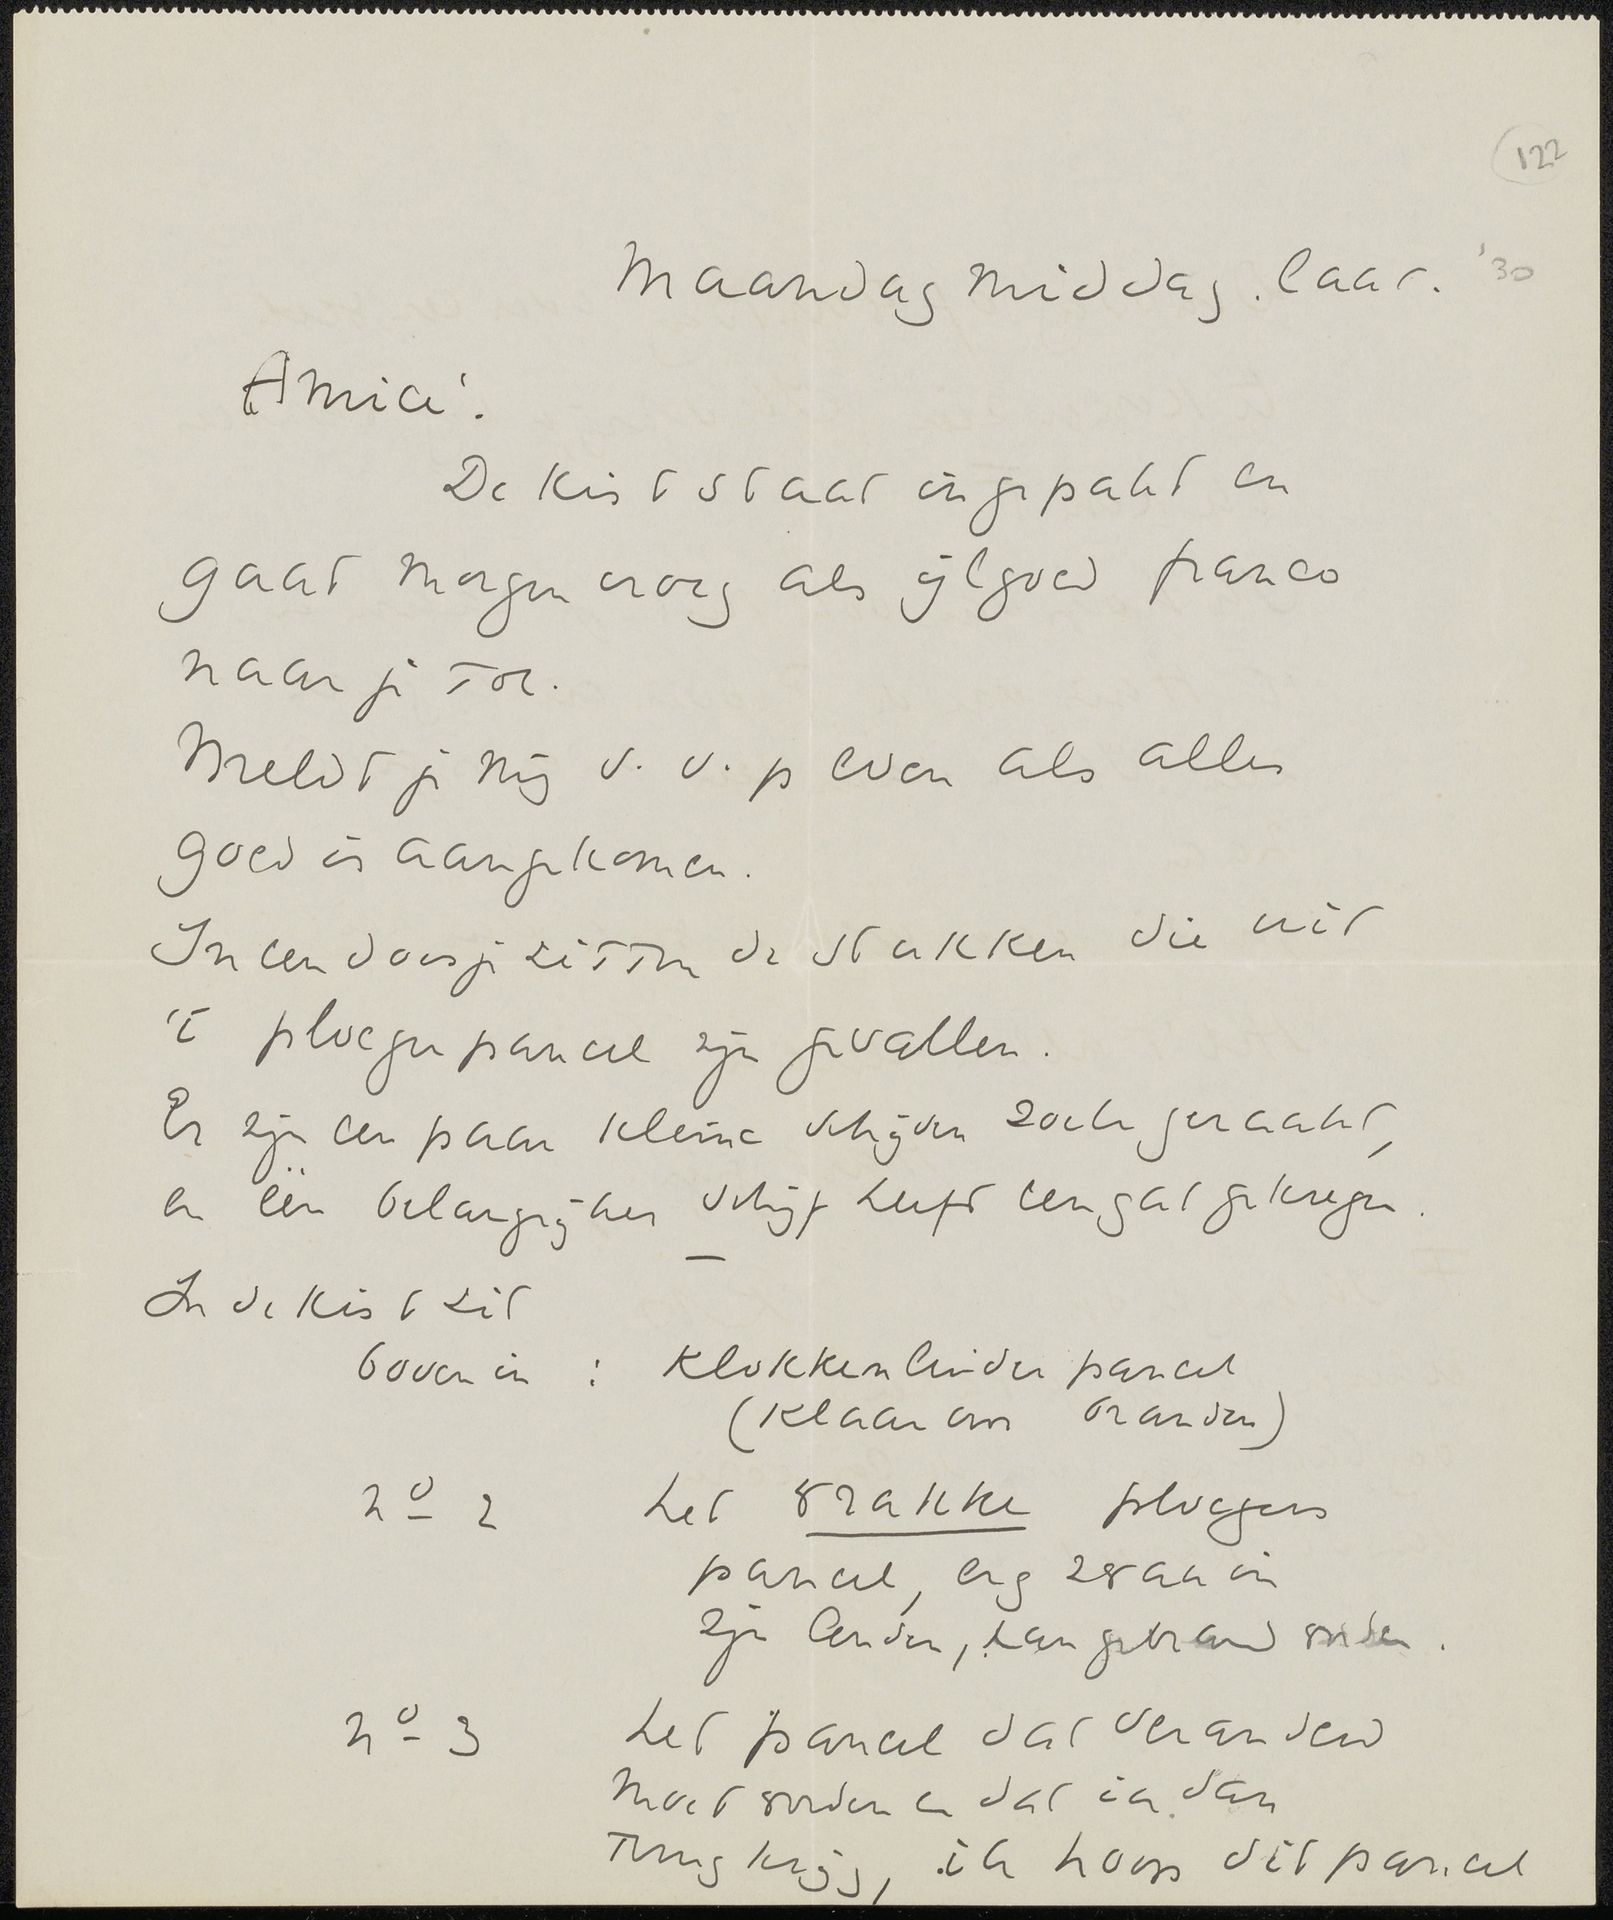 122
Maandag middag. laat. '30
Amici.
De kist staat ingepakt en
gaat morgen vroeg als ijlgoed franco
naar je toe.
Meldt je mij s. v. p even als alles
goed is aangekomen.
In een doosje zitten de stukken die uit
't ploeger paneel zijn gevallen.
Er zijn een paar kleine schijven zoek geraakt,
en één belangrijker schijf heeft een gat gekregen.
In de kist zit
boven in : Klokkenluider paneel
(klaar om branden)
no 2 het vlakke ploegers
paneel, erg zwak in
zijn lenden, kan gebrand worden.
no 3 het paneel dat veranderd
moet worden en dat ik dan
terug krijg, ik hoop dit paneel